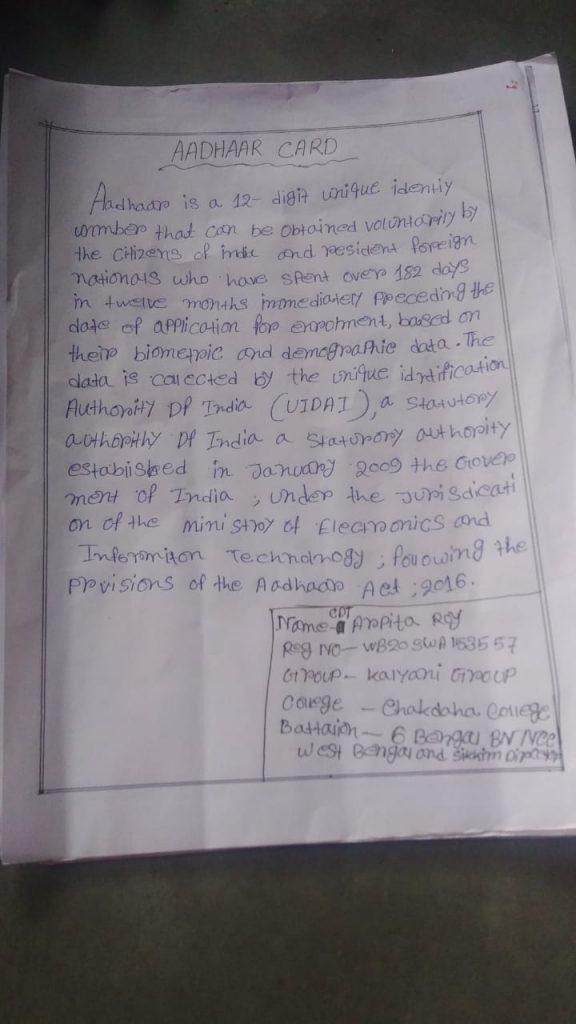 AADHAAR CARD
Aadhaar is a 12-digit unique identiy
unmber that can be obtained voluntarily by
the citizens of india and resident foreign
nationals who have spent over 182 days
in twelve months immediately preceding the
date of application for enrolment, based on
their biometric and demographic data. The
data is collected by the unique idntification
Authority Of India (UIDAI), a statutory
authorithy Of India a statutory authority
established in January 2009 the Gover
ment of India, under the jurisdicati
on of the ministroy of Electronics and
Informition Technology; following the
provisions of the Aadhaar Act; 2016.
Name- CDT Arpita Roy
Reg No- WB20SWA153557
Group- Kalyani Group
College - Chakdaha College
Battalion- 6 Bengal BN NCC
West Bengal and Sikkim